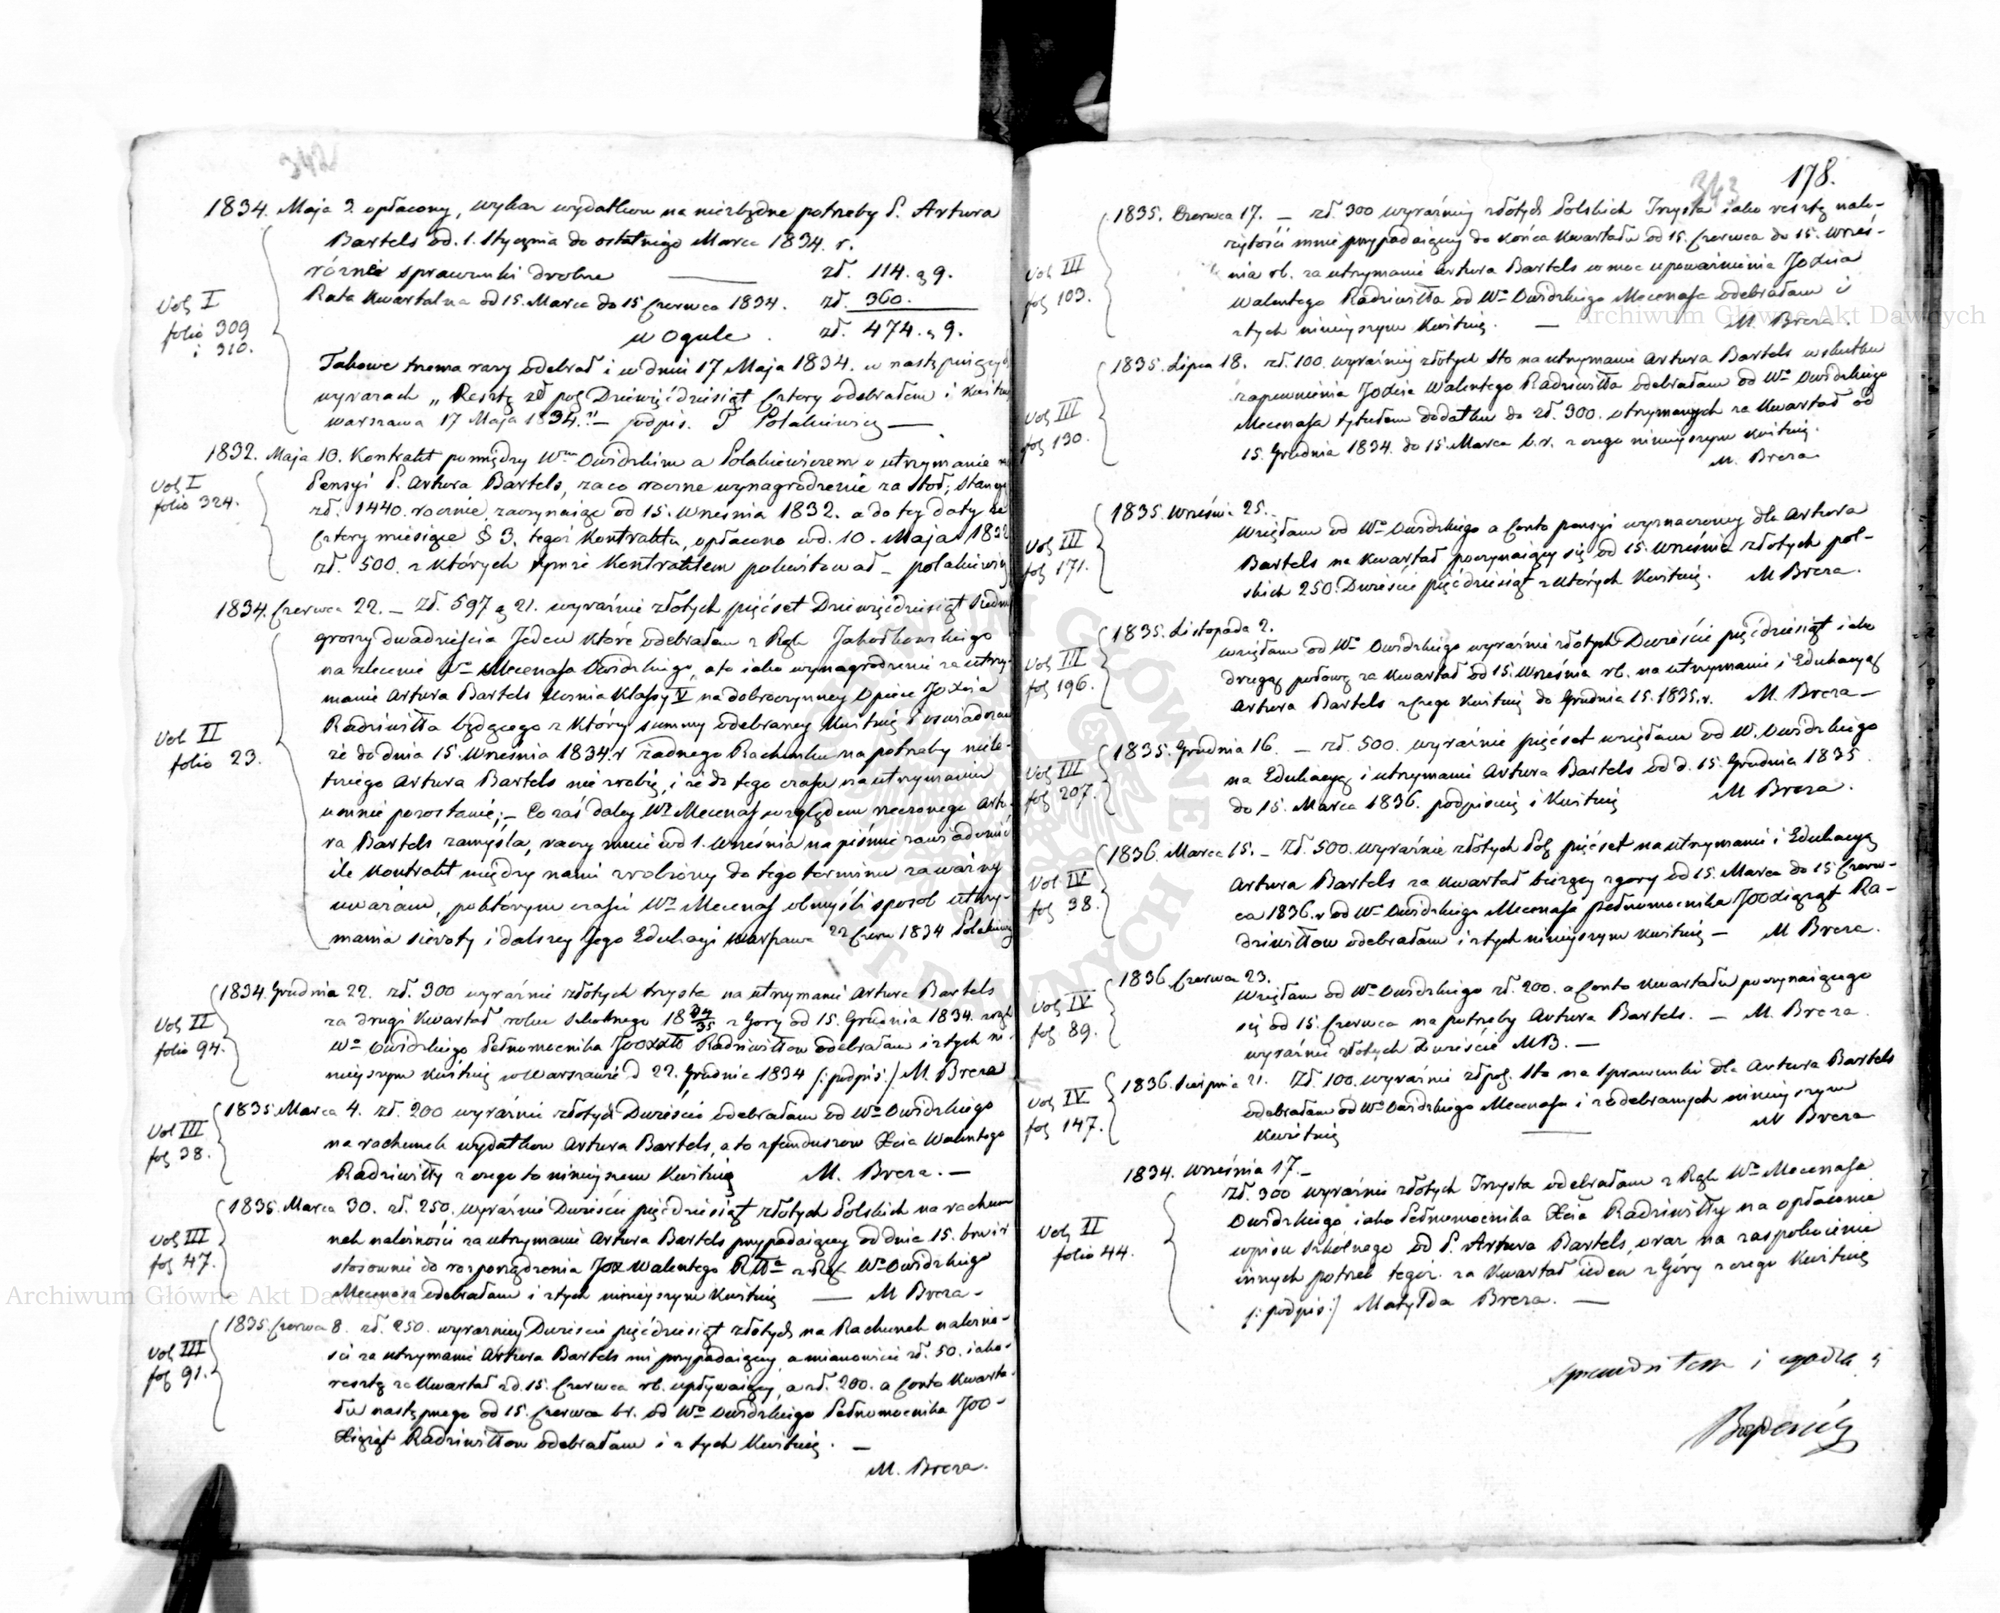 342
1834. Maja 3. opłacony, wykaz wydatkow na niezbędne potrzeby P. Artura
Bartels od. 1. Stycznia do ostatniego Marca 1834. r.
różne sprawunki drobne — zł. 114. g 9.
Rata Kwartalna od 15. Marca do 15 Czerwca 1834. zł. 360.
w Ogule zł. 474. g 9.
Vol I
folio 309
i 310.
Takowe trzema razy odebrał i w dniu 17 Maja 1834. w następuiących
wyrazach „ Resztę zł pol Dziewięćdziesiąt Cztery odebrałem i Kwituię
Warszawa 17 Maja 1834." — podpis. F Polakiewicz —
1832. Maja 10. Kontrakt pomiędzy Wm Owidzkim a Polakiewiczem o utrzymanie na
Vol I
folio 324.
Pensyi P. Artura Bartels, za co roczne wynagrodzenie za Stoł, Stancyę
zł. 1440. rocznie, zaczynaiąc od 15. Września 1832. a do tej daty za
Cztery miesiące § 3. tegoż Kontraktu, opłacono w d. 10. Maja 1832
zł. 500. z których tymże Kontraktem pokwitował — Polakiewicz
1834. Czerwca 22. — Zł. 597 g 21. wyraźnie złotych pięćset Dziewięćdziesiąt siedm
groszy dwadzieścia Jeden które odebrałem z Rąk Jakołkowskiego
na zlecenie Wo Mecenasa Owidzkiego, a to iako wynagrodzenie za utrzy-
manie Artura Bartels Ucznia Klassy V na dobroczynney Opiece JoXcia
Radziwiłła będącego z Który summy odebraney Kwituię i oswiadczam
Vol II
folio 23.
że do dnia 15. Września 1834. r żadnego Rachunku na potrzeby nielet-
niego Artura Bartels nie zrobię, i że do tego czasu na utrzymaniu
u mnie pozostanie; — Co zaś daley Wy Mecenas względem rzeczonego Artu-
ra Bartels zamyśla, raczy mnie w d 1. Września na piśmie zawiadomić
ile Kontrakt między nami zrobiony do tego terminu za ważny
uważam, po którym czasie Wy Mecenas obmyśli sposob utrzy-
mania Sieroty i dalszey Jego Edukacyi Warszawa 22 Czerw 1834 Polakiewicz
1834. Grudnia 22. zł. 300 wyraźnie złotych trzysta na utrzymanie Artura Bartels
Vol II
folio 94.
za drugi Kwartał roku szkolnego 18 34/35 z Gory od 15. Grudnia 1834. z rąk
Wo Owidzkiego Pełnomocnika JOOXXtt Radziwiłłow odebrałam i z tych ni-
nieyszym Kwituię w Warszawie d 22. Grudnia 1834 /: podpis :/ M Breza
1835. Marca 4. zł. 200 wyraźnie złotych Dwieście odebrałam od Wo Owidzkiego
Vol III
fol 38.
na rachunek wydatkow Artura Bartels, a to z funduszow Xcia Walentego
Radziwiłły z czego to ninieyszem Kwituię M. Breza. —
1835. Marca 30. zł. 250. wyraźnie Dwieście pięćdziesiąt złotych Polskich na rachu-
Vol III
fol 47.
nek należności za utrzymanie Artura Bartels przypadaiącey od dnia 15. b m i r
stosownie do rozporządzenia JOX Walentego RWo z Rąk Wo Owidzkiego
Mecenasa odebrałam i z tych ninieyszym Kwituię — M Breza —
1835. Czerwca 8. zł. 250. wyraźniey Dwieście pięćdziesiąt złotych na Rachunek należno-
Vol III
fol 91.
ści za utrzymanie Artura Bartels mi przypadaiącey, a mianowicie zł. 50. iako
resztę za Kwartał z d. 15. Czerwca rb. upływaiący, a zł. 200. a Conto Kwarta-
łu następnego od 15. Czerwca br. od Wo Owidzkiego Pełnomocnika JOO-
Xiążąt Radziwiłłow odebrałam i z tych Kwituię. —
M. Breza.
343
178.
1835. Czerwca 17. — zł. 300 wyraźniey złotych Polskich Trzysta iako resztę nale-
żytości mnie przypadaiącey do Końca Kwartału od 15. Czerwca do 15. Wrześ-
Vol III
fol 103.
nia rb. za utrzymanie Artura Bartels w moc upoważnienia JoXcia
Walentego Radziwiłła od Wo Owidzkiego Mecenasa odebrałam i
z tych ninieyszym Kwituię. — M. Breza.
1835. Lipca 18. zł. 100. wyraźniey złotych Sto na utrzymanie Artura Bartels w skutku
zapewnienia JoXcia Walentego Radziwiłła odebrałam od Wo Owidzkiego
Vol III
fol 130.
Mecenasa tytułem dodatku do zł. 300. otrzymanych za Kwartał od
15. Grudnia 1834. do 15 Marca b. r. z czego ninieyszym Kwituię.
M. Breza
1835. Września 25.
Vol III
fol 171.
Wzięłam od Wo Owidzkiego a Conto pensyi wyznaczoney dla Artura
Bartels na Kwartał poczynaiący się od 15. Września złotych pol-
skich 250. Dwieście pięćdziesiąt z których Kwituię. M Breza.
1835. Listopada 2.
Vol III
fol 196.
wzięłam od Wo Owidzkiego wyraźnie złotych Dwieście pięćdziesiąt iako
drugą połowę za Kwartał od 15. Września rb. na utrzymanie i Edukacyą
Artura Bartels z Czego Kwituię do Grudnia 15. 1835. r. M. Breza —
1835. Grudnia 16. — zł. 500. wyraźnie pięćset wzięłam od W. Owidzkiego
Vol III
fol 207.
na Edukacyą i utrzymanie Artura Bartels od d. 15. Grudnia 1835
do 15. Marca 1836. podpisuię i Kwituię M Breza.
1836. Marca 15. — Zł. 500. wyraźnie złotych Pol pięćset na utrzymanie i Edukacyą
Vol IV
fol 38.
Artura Bartels za Kwartał bieżący z gory od 15. Marca do 15 Czerw-
ca 1836. r od Wo Owidzkiego Mecenasa Pełnomocnika JOOXiążąt Ra-
dziwiłłow odebrałam i z tych ninieyszym Kwituię — M Breza.
1836. Czerwca 23.
Vol IV
fol 89.
Wzięłam od Wo Owidzkiego zł. 200. a Conto Kwartału poczynaiącego
się od 15. Czerwca na potrzeby Artura Bartels. — M. Breza.
wyraźnie złotych Dwieście MB. —
1836. Sierpnia 21. Zł. 100. wyraźnie złpol. Sto na sprawunki dla Artura Bartels
Vol IV
fol 147.
odebrałam od Wo Owidzkiego Mecenasa i z odebranych ninieyszym
Kwituię — M Breza
1834. Września 17. —
Zł. 300 wyraźnie złotych Trzysta odebrałam z Rąk Wo Mecenasa
Vol II
folio 44.
Owidzkiego iako Pełnomocnika Xcia Radziwiłły na opłacenie
wpisu szkolnego od P. Artura Bartels, oraz na zaspokoienie
innych potrzeb tegoż. za Kwartał ieden z Góry z czego Kwituię
/: podpis :/ Matylda Breza. —
sprawdziłem i zgodzą
Archiwum Główne Akt Dawnych
Archiwum Główne Akt Dawnych